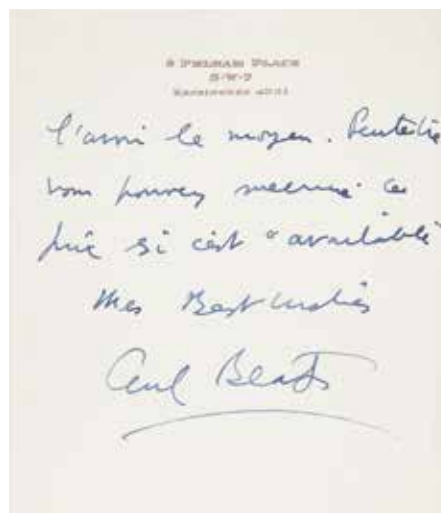 8 PELHAM PLACE
S·W·7
KENSINGTON
l'avoir le moyen. Peutetre
vous pouvez ce
prix si c'est "available"
Mes Best wishes
Cecil Beaton